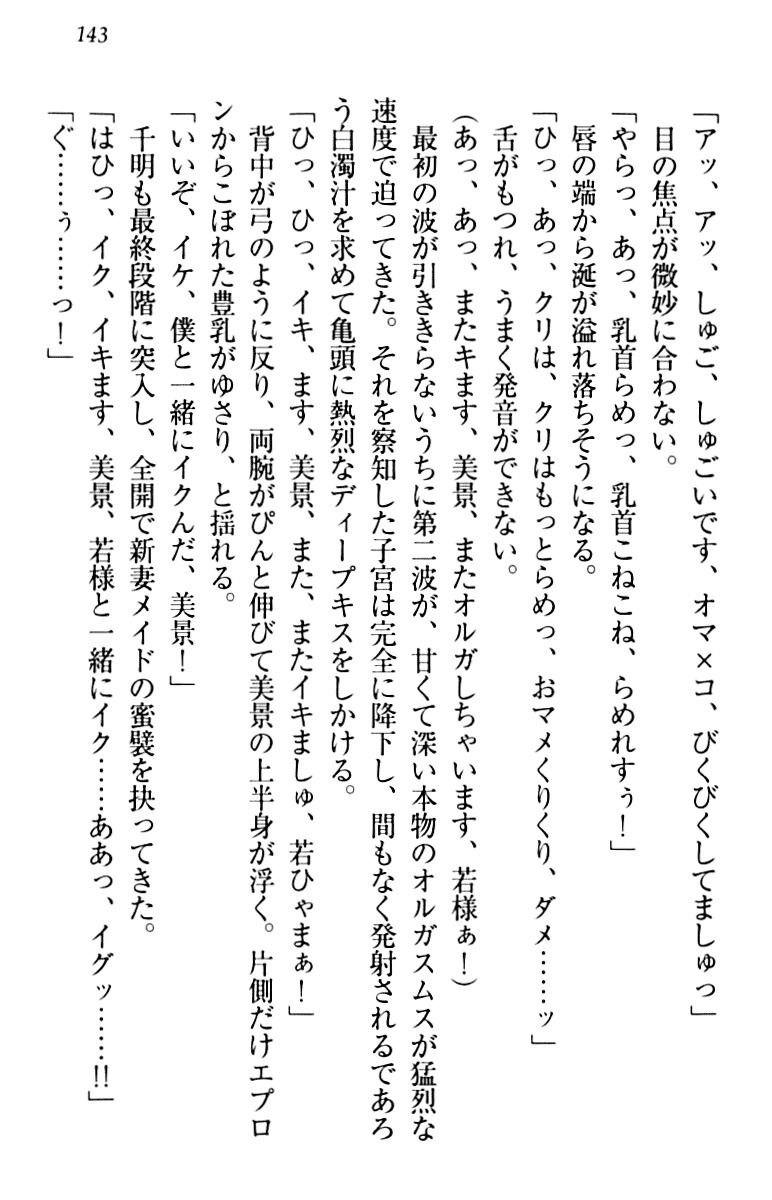 143
「アッ、アッ、しゅご、しゅごいです、オマ×コ、びくびくしてましゅっ」
目の焦点が微妙に合わない。
「やらっ、あっ、乳首らめっ、乳首こねこね、らめれすぅ！」
唇の端から涎が溢れ落ちそうになる。
「ひっ、あっ、クリは、クリはもっとらめっ、おマメくりくり、ダメ……ッ」
舌がもつれ、うまく発音ができない。
（あっ、あっ、またキます、美景、またオルガしちゃいます、若様ぁ！）
最初の波が引ききらないうちに第二波が、甘くて深い本物のオルガスムスが猛烈な
速度で迫ってきた。それを察知した子宮は完全に降下し、間もなく発射されるであろ
う白濁汁を求めて亀頭に熱烈なディープキスをしかける。
「ひっ、ひっ、イキ、ます、美景、また、またイキましゅ、若ひゃまぁ！」
背中が弓のように反り、両腕がぴんと伸びて美景の上半身が浮く。片側だけエプロ
ンからこぼれた豊乳がゆさり、と揺れる。
「いいぞ、イケ、僕と一緒にイクんだ、美景！」
千明も最終段階に突入し、全開で新妻メイドの蜜襞を抉ってきた。
「はひっ、イク、イキます、美景、若様と一緒にイク……ああっ、イグッ……!!」
「ぐ……ぅ……っ！」